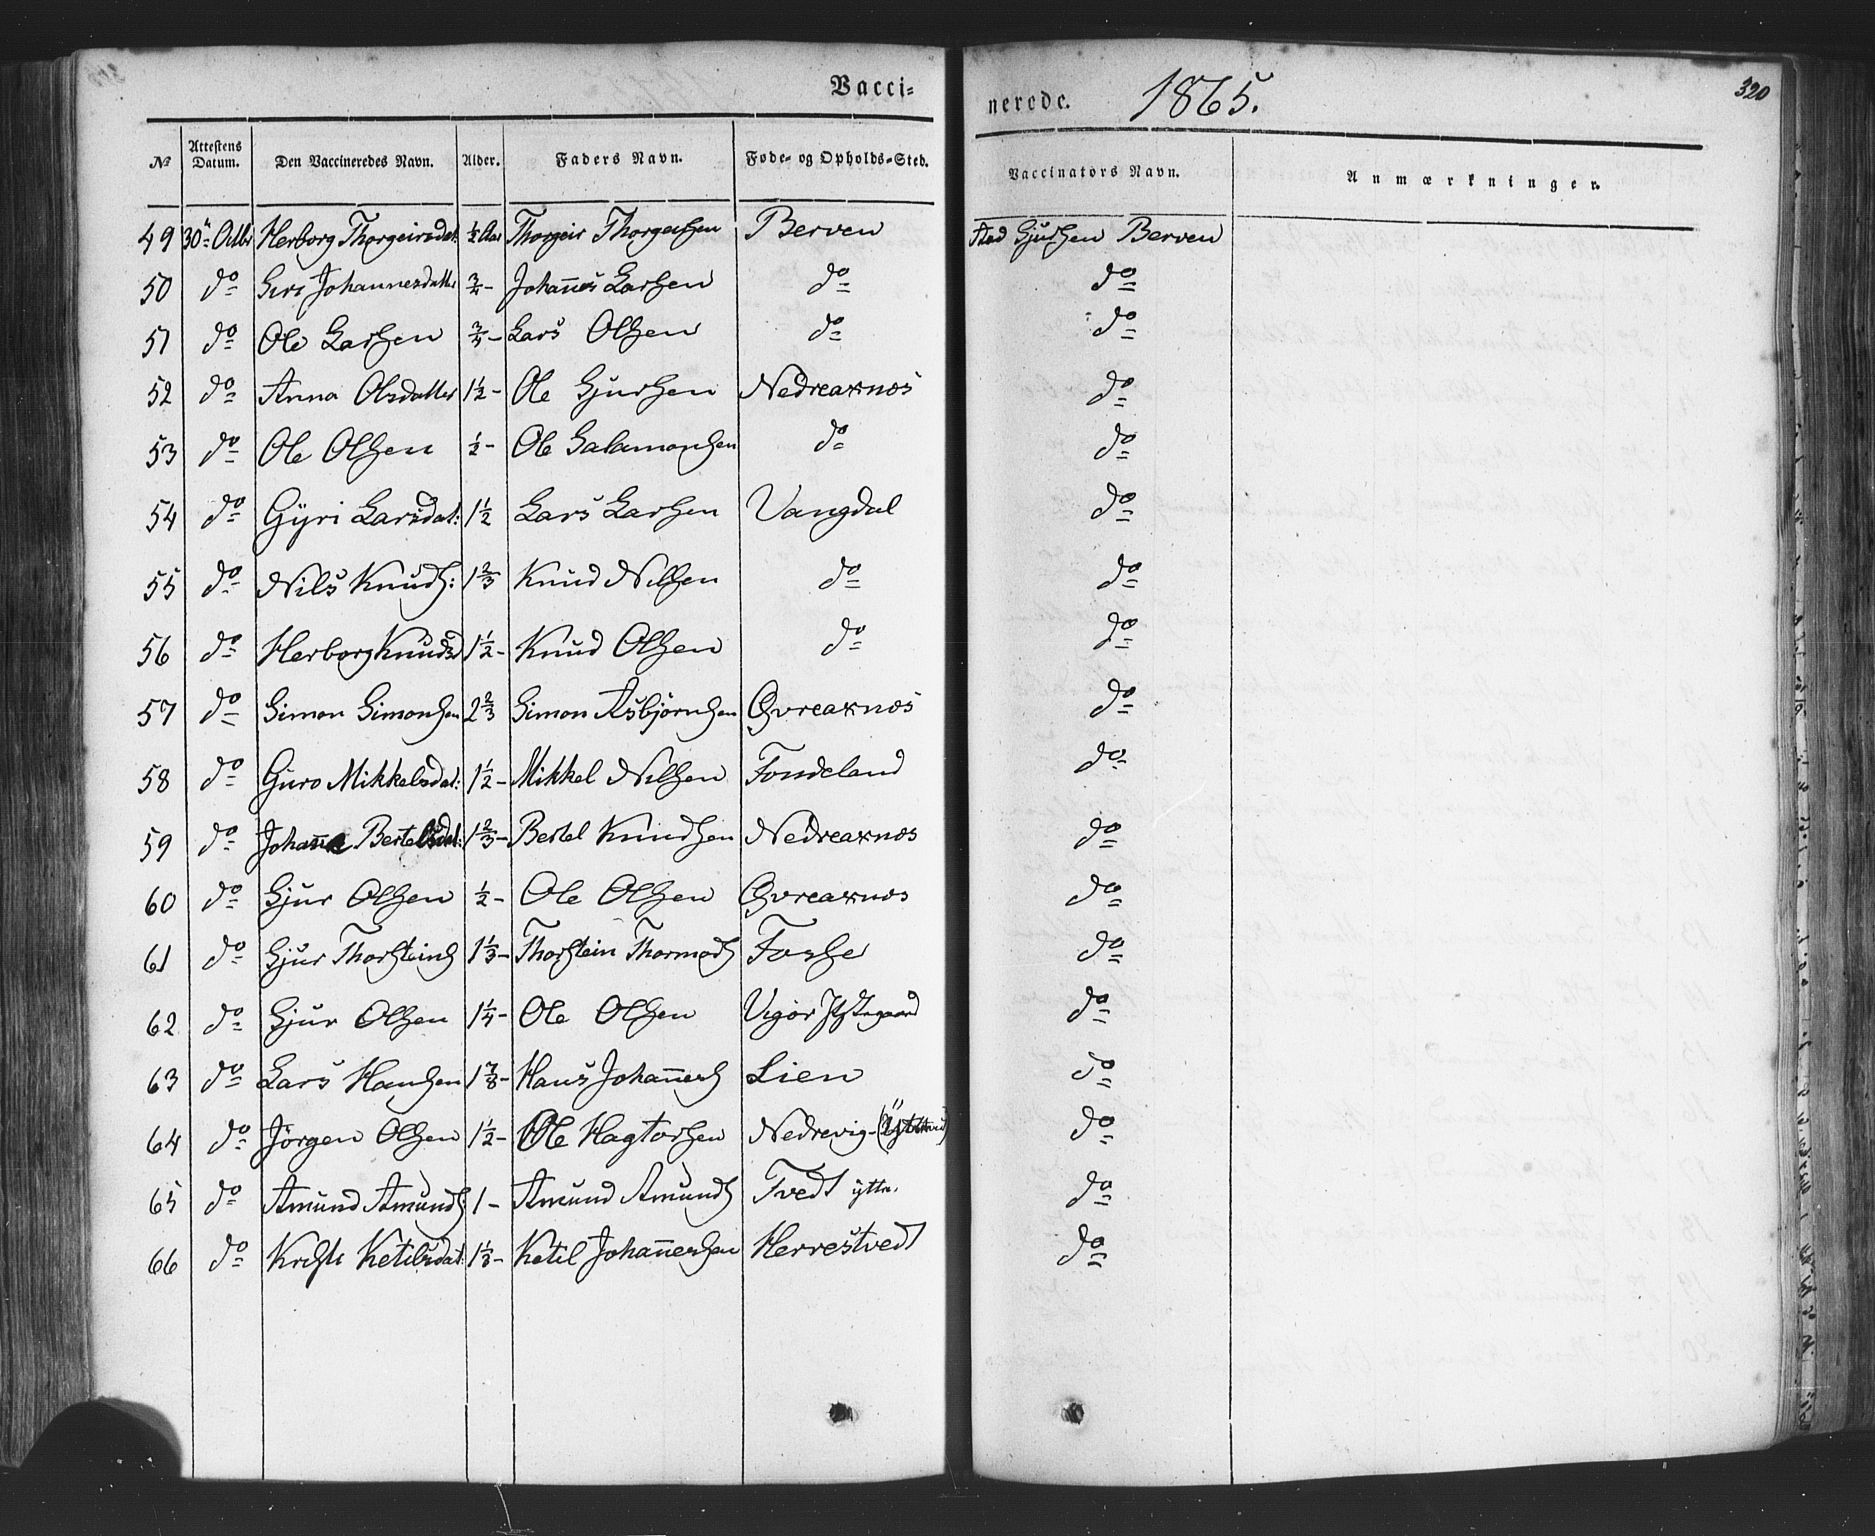 Vacci=
nerede. 1865.
320
№ Attestens Datum. Den Vaccineredes Navn. Alder. Faders Navn. Føde- og Opholds-Sted. Vaccinators Navn. Anmærkninger.
49 30 Octbr Herborg Thorgeirsdat: ½ Aar Thorgeir Thorgeirsen Berven Sjursen Berven
50 do Johannesdatter ¾ - Johan̄es Larsen do do
51 do Ole Larsen - Lars Olsen do do
52 do Anna Olsdatter 1½ - Ole Sjursen Nedreaxnæs do
53 do Ole Olsen ½ - Ole Salamonsen do do
54 do Gyri Larsdat: 1½ Lars Larsen Vangdal do
55 do Nils Knuds: 1⅔ Knud Nilsen do do
56 do Herborg Knudsd 1½ - Knud Olsen do do
57 do Simon Simonsen 2⅔ Simon Asbjørnsen Øvreaxnæs do
58 do Guro Mikkelsdat: 1½ - Mikkel Nilsen Fondeland do
59 do Johan̄e Bertelsdat: 1⅔ - Bertel Knudsen Nedreaxnæs do
60 do Sjur Olsen ½ - Ole Olsen Øvreaxnæs do
61 do Sjur Thorsteins 1⅓ - Thorstein Thormods Fosse do
62 do Sjur Olsen 1¼ - Ole Olsen Vigør do
63 do Lars Hansen 1⅞ - Hans Johan̄es Lien do
64 do Jörgen Olsen 1½ - Ole Hagtorsen Nedrevig - do
65 do Amund Amunds: 1 - Amund Amunds Tvedt ytre. do
66 do Kristi Ketilsdat: 1⅓ - Ketil Johan̄essen Herrestvedt do